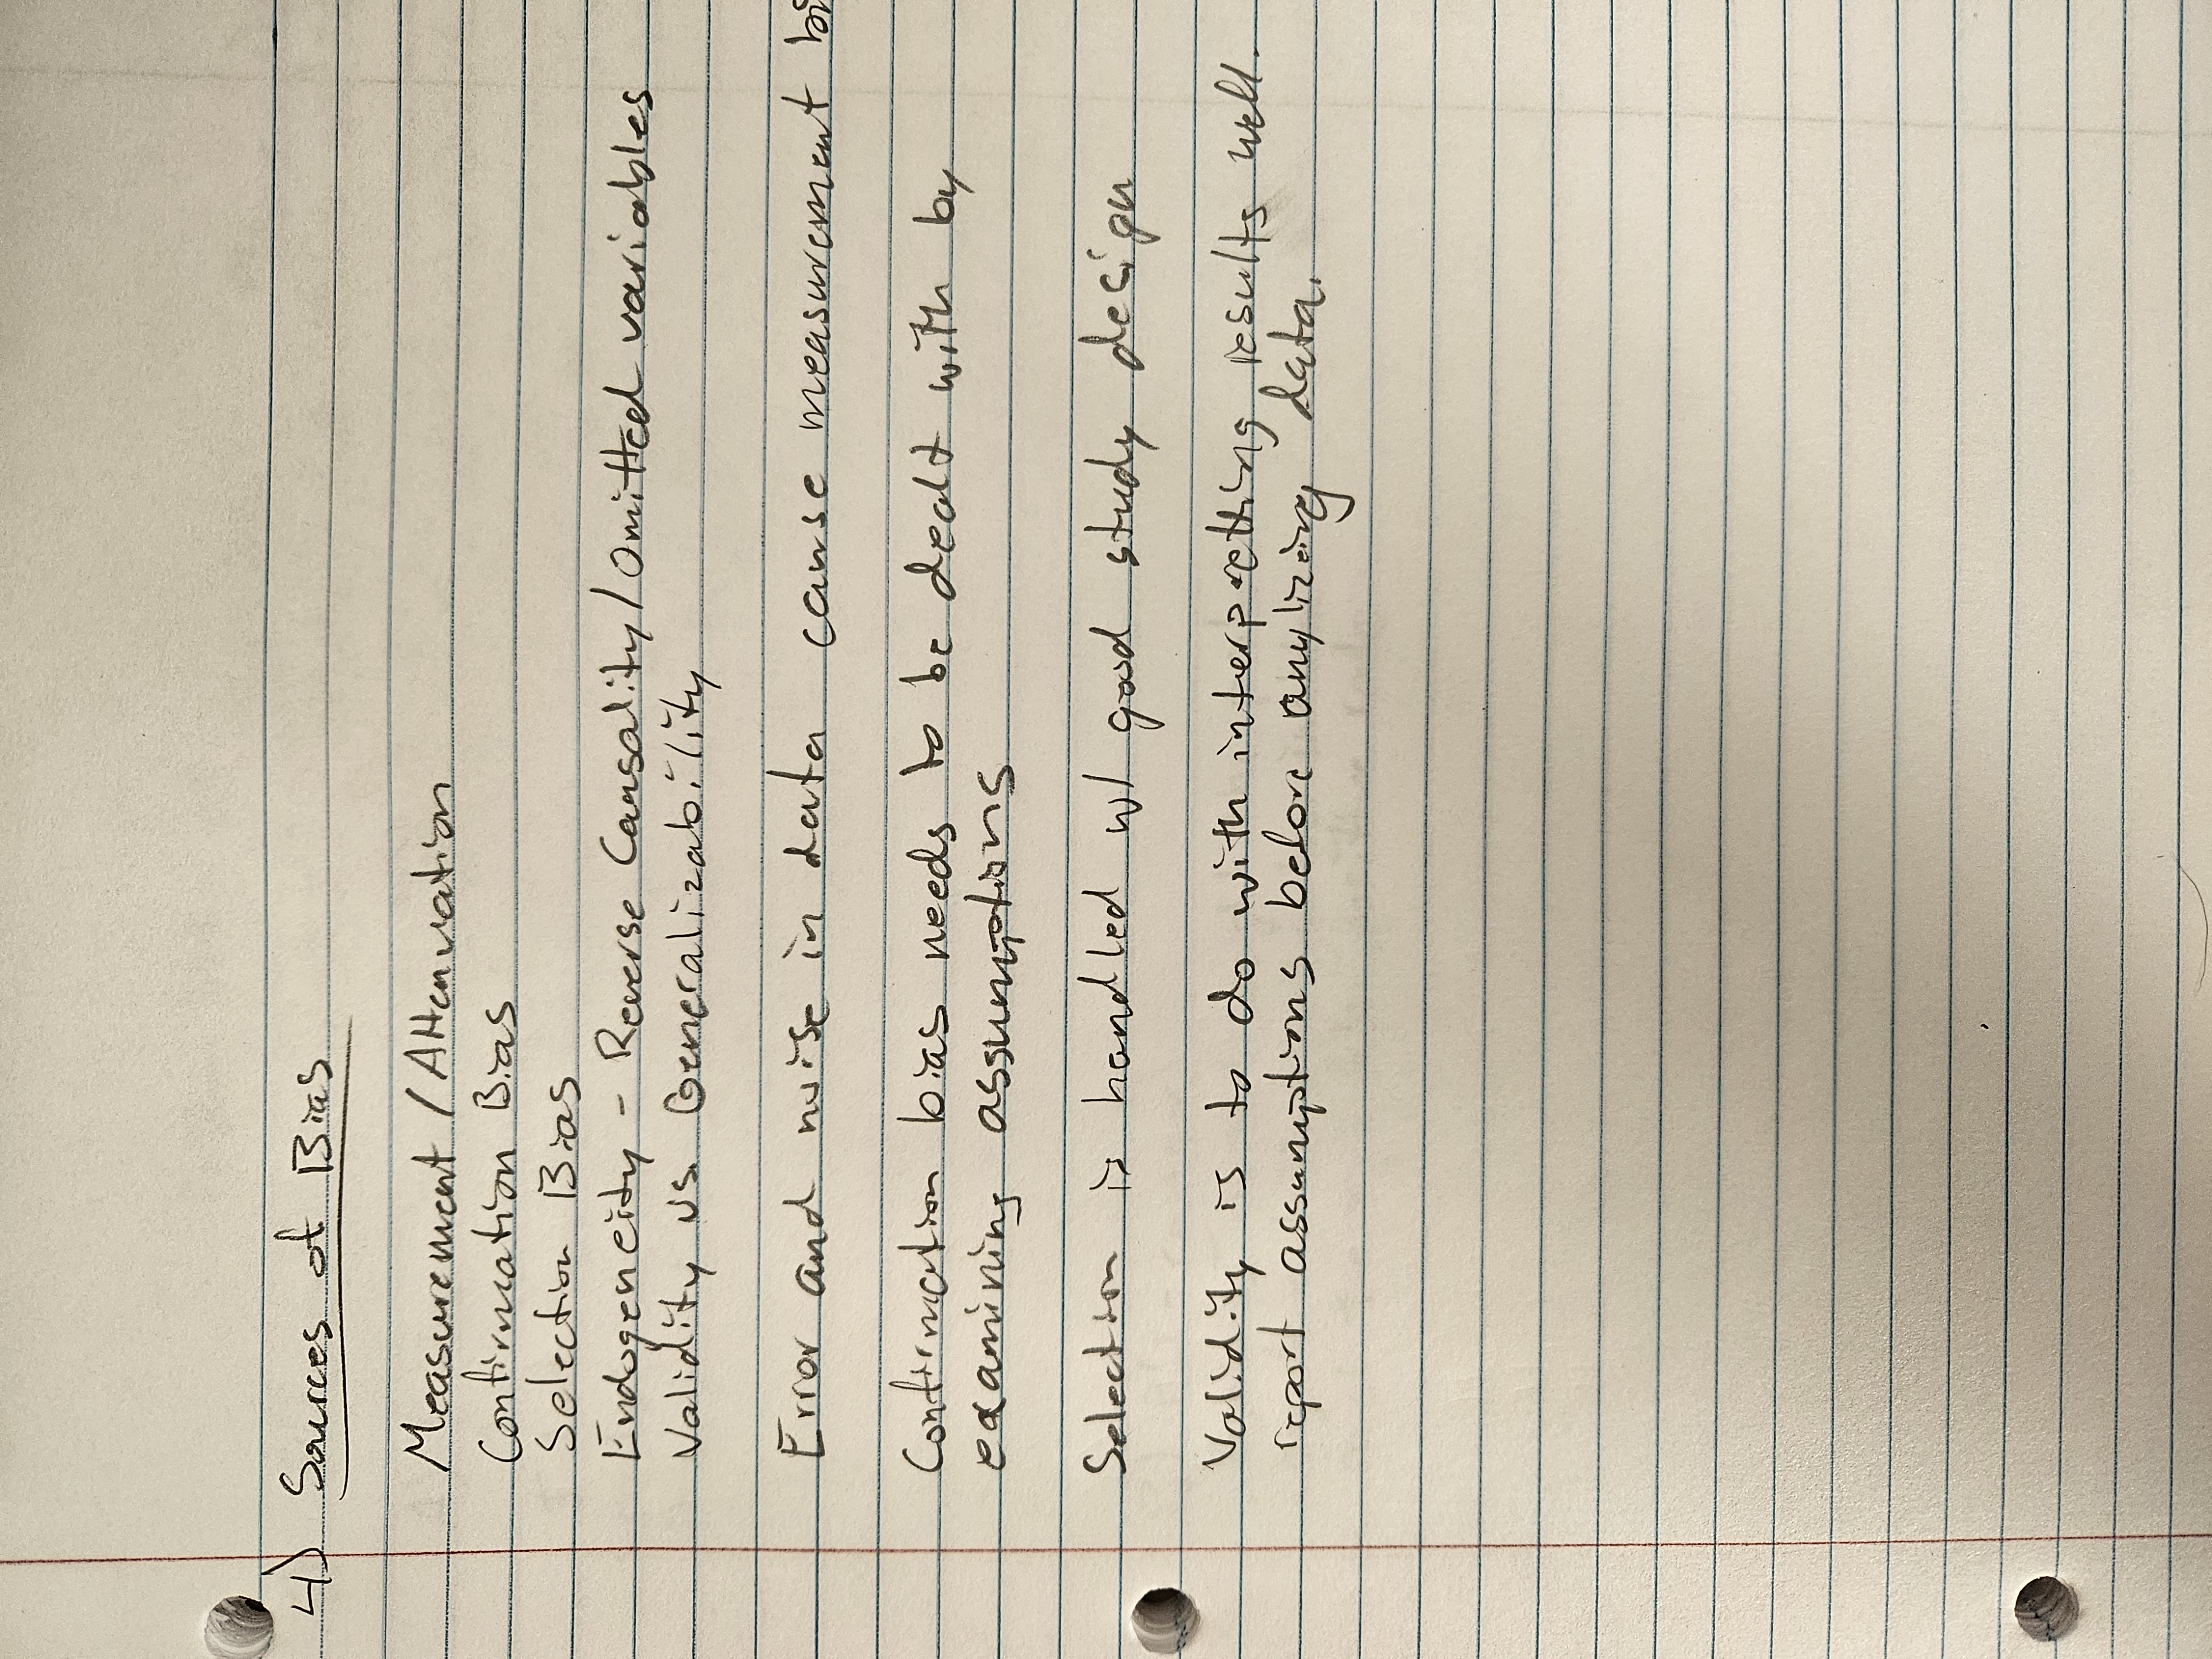 4) Sources of Bias
Measurement / Attenuation
Confirmation Bias
Selection Bias
Endogeneity - Reverse Causality / Omitted variables
Validity vs. Generalizability
Error and noise in data cause measurement bi
Confirmation bias needs to be dealt with by
examining assumptions
Selection is handled w/ good study design
Validity is to do with interpretting results well.
report assumptions before anylizing data.